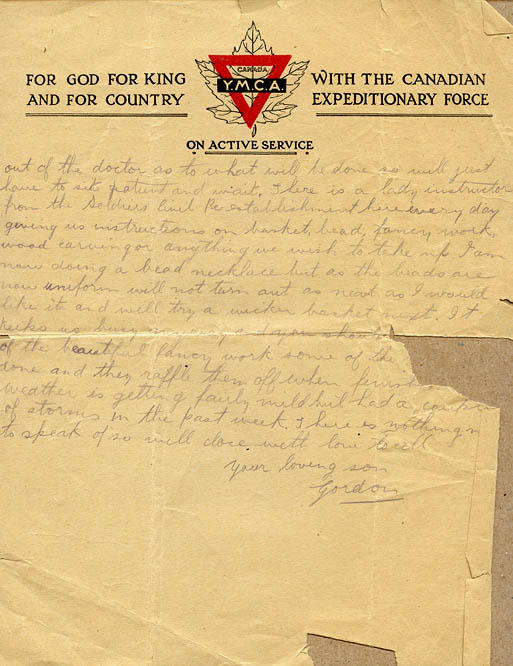 FOR GOD FOR KING
AND FOR COUNTRY
CANADA
Y.M.C.A.
WITH THE CANADIAN
EXPEDITIONARY FORCE
ON ACTIVE SERVICE
out of the doctor as to what will be done so will just
have to sit patient and wait. There is a lady instructor
from the Soldiers Civil Re-establishment here every day
giving us instructions on basket, bead, fancy, work,
wood carving or anything we wish to take up. I am
now doing a bead necklace but as the beads are
non uniform will not turn out as neat as I would
like it and will try a wicker basket next. It
keeps us busy anyway and you should
of the beautiful fancy work some of the
done and they raffle them off when finish
weather is getting fairly mild but had a couple
of storms in the past week. There is nothing
to speak of so will close with love to all
Your loving son
Gordon